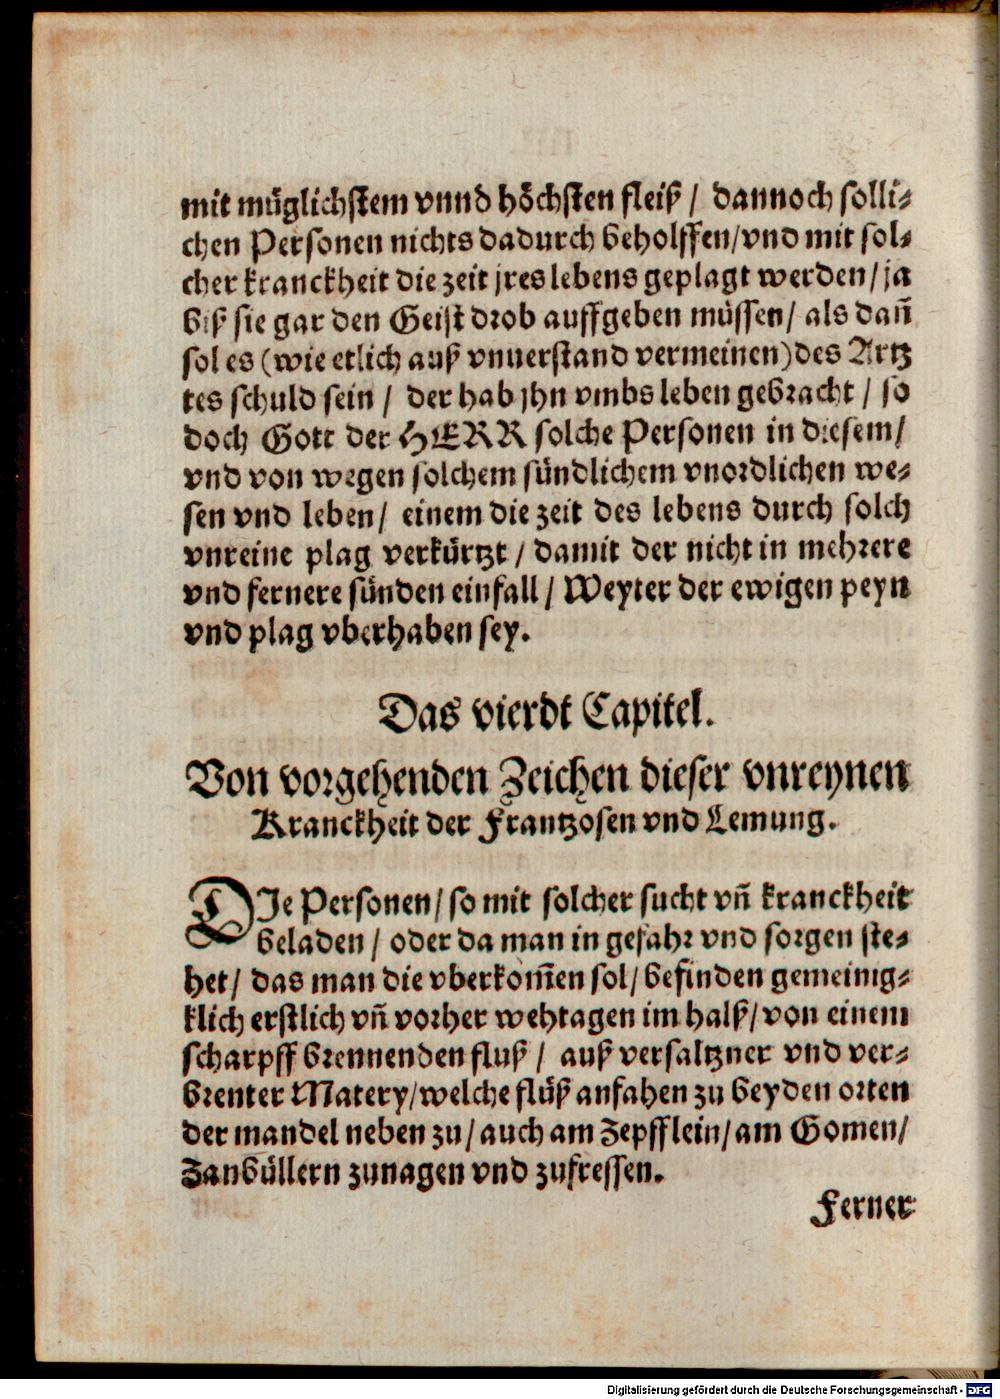 mit müglichstem vnnd höchsten fleiß / dannoch solli⸗
chen Personen nichts dadurch beholffen/vnd mit sol⸗
cher kranckheit die zeit jres lebens geplagt werden/ja
biß sie gar den Geist drob auffgeben müssen/ als dañ
sol es (wie etlich auß vnuerstand vermeinen)des Artz
tes schuld sein / der hab jhn vmbs leben gebracht / so
doch Gott der HERR solche Personen in diesem/
vnd von wegen solchem sündlichem vnordlichen we⸗
sen vnd leben/ einem die zeit des lebens durch solch
vnreine plag verkürtzt / damit der nicht in mehrere
vnd fernere sünden einfall / Weyter der ewigen peyn
vnd plag vberhaben sey.
Das vierdt Capitel.
Von vorgehenden Zeichen dieser vnreynen
Kranckheit der Frantzosen vnd Lemung.
DIe Personen/ so mit solcher sucht vñ kranckheit
beladen / oder da man in gefahr vnd sorgen ste⸗
het/ das man die vberkom̃en sol/ befinden gemeinig⸗
klich erstlich vñ vorher wehtagen im halß/ von einem
scharpff brennenden fluß / auß versaltzner vnd ver⸗
brenter Matery/welche flüß anfahen zu beyden orten
der mandel neben zu/ auch am Zepfflein/ am Gomen/
Zanbüllern zunagen vnd zufressen.
Ferner
Digitalisierung gefördert durch die Deutsche Forschungsgemeinschaft - DFG